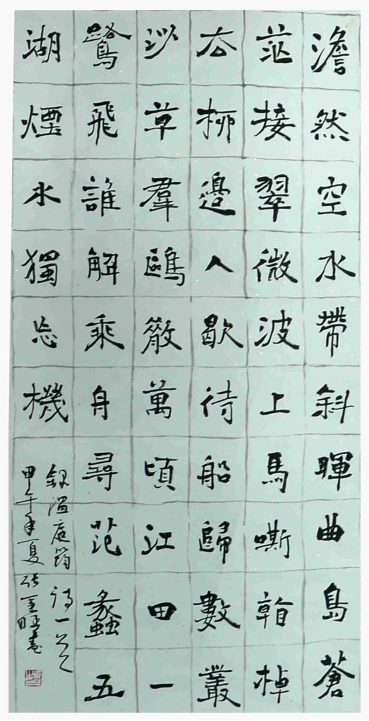 澹然空水帶斜暉曲島蒼
茫接翠微波上馬嘶看棹
去柳邊人歇待船歸數叢
沙草羣鷗散萬頃江田一
鷺飛誰解乘舟尋范蠡五
湖煙水獨忘機
錄溫庭筠詩一首
甲午年夏張書